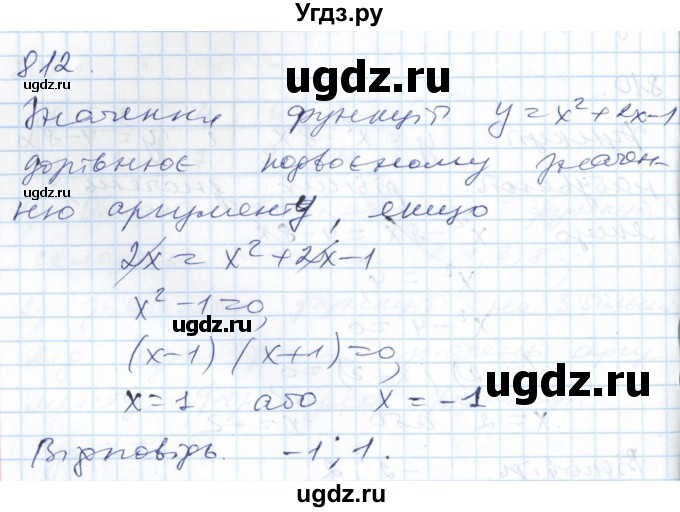 Угдз.ру
812.
ugdz.ru
Значення функції y = x² + 2x - 1
дорівнює подвоєному значен-
ню аргументу, якщо
ugdz.ru
2x = x² + 2x - 1
x² - 1 = 0,
ugdz.ru
(x-1) (x+1) = 0,
ugdz.ru
x = 1 або x = -1
Відповідь. -1; 1.
ugdz.ru
ugdz.ru